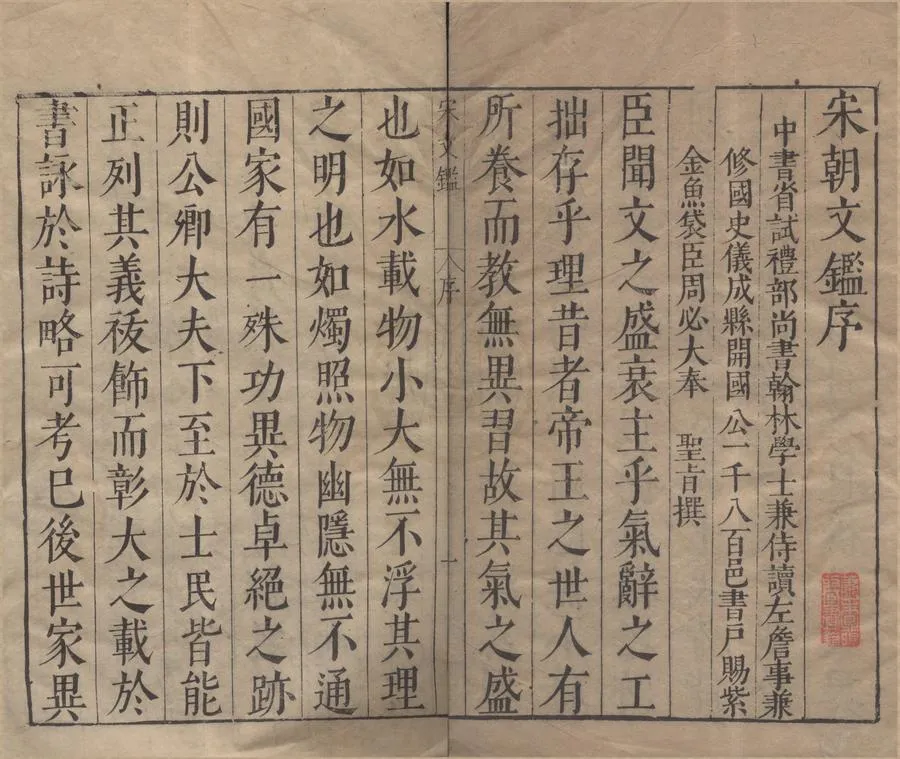 宋朝文鑑序
中書省試禮部尚書翰林學士兼侍讀左詹事兼
修國史儀成縣開國公一千八百邑書戸賜紫
金魚袋臣周必大奉　聖旨撰
臣聞文之盛衰主乎氣辭之工
拙存乎理昔者帝王之世人有
所養而教無異習故其氣之盛
宋文鑑　序　一
也如水載物小大無不浮其理
之明也如燭照物幽隱無不通
國家有一殊功異德卓絕之跡
則公卿大夫下至於士民皆能
正列其義祓飾而彰大之載於
書詠於詩略可考巳後世家異